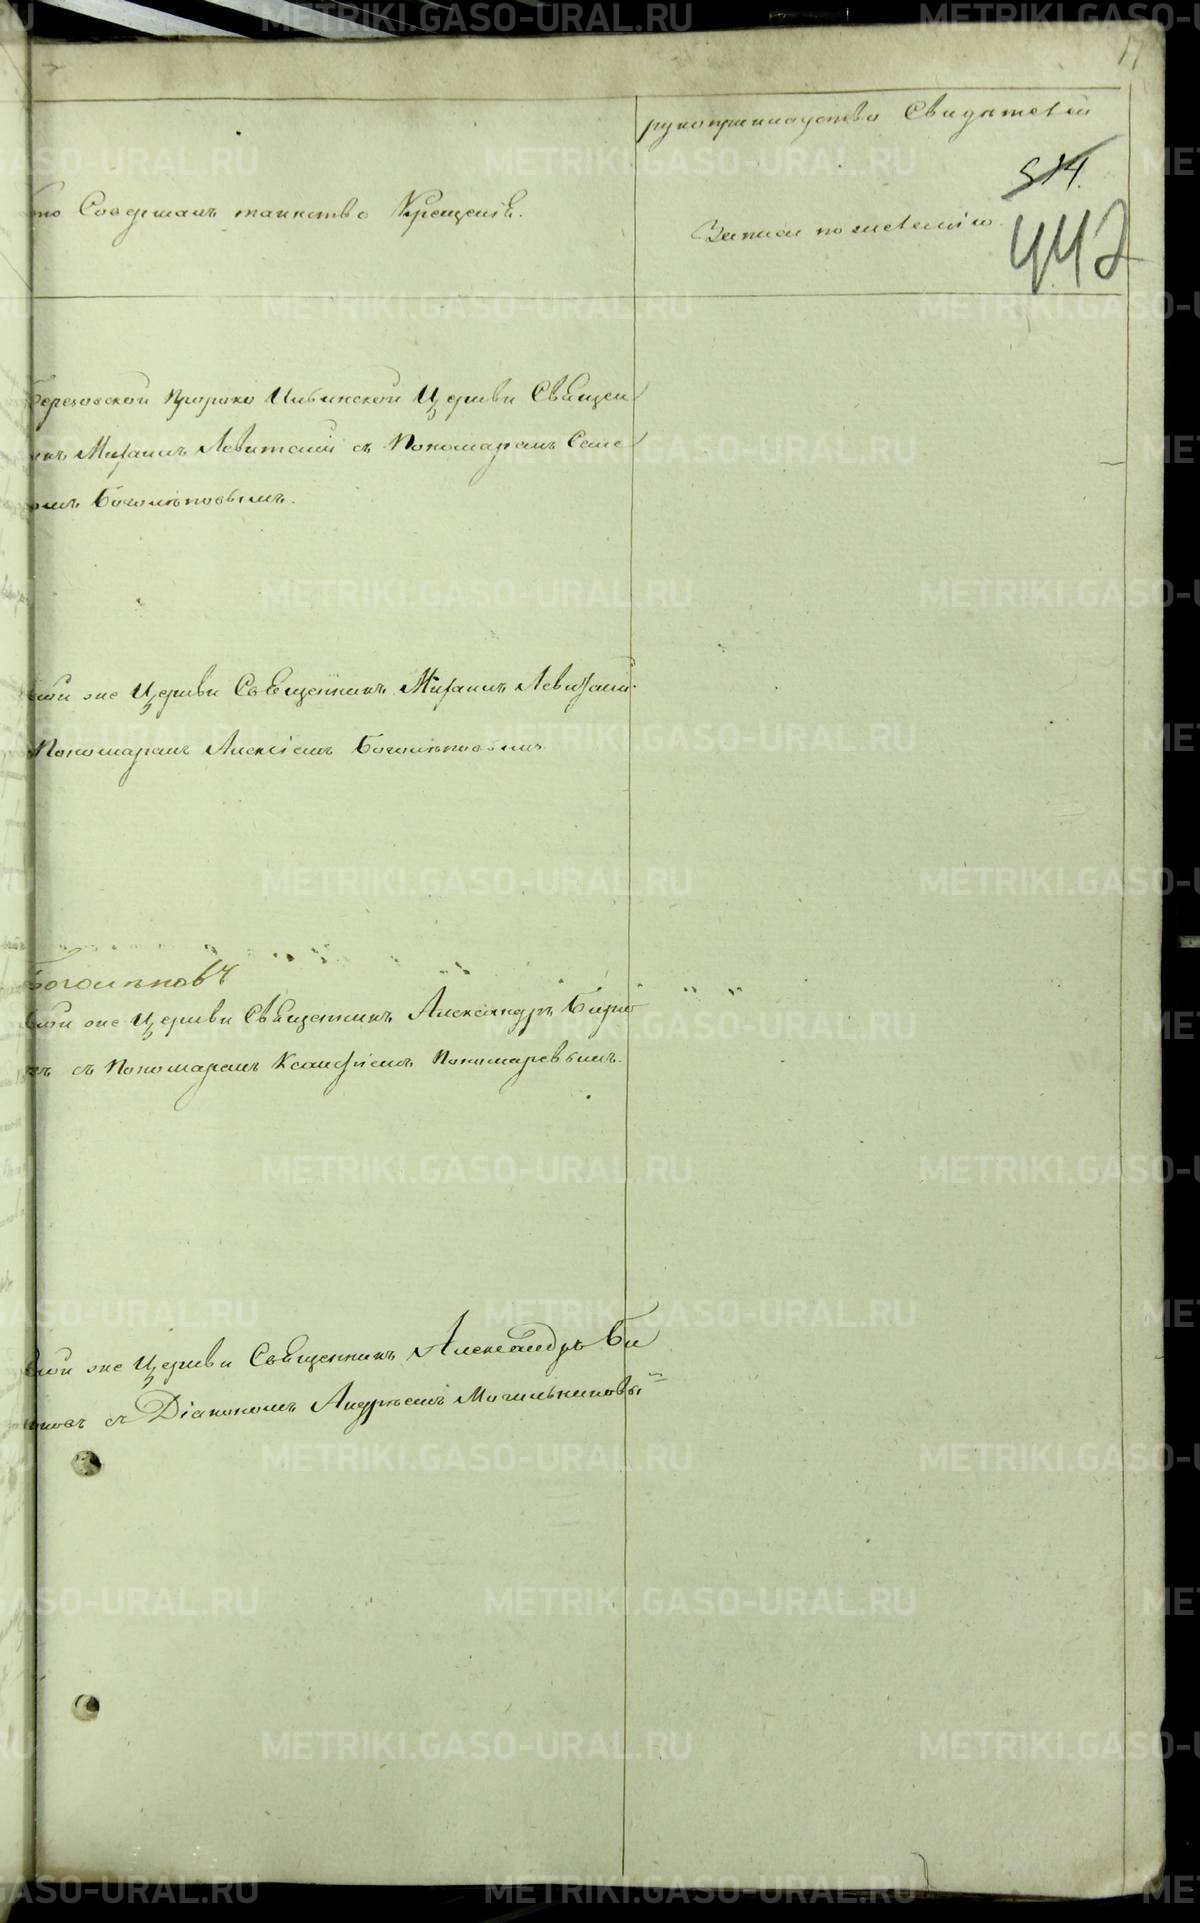 17
рукоприкладство Свидѣтелей
514.
то Совершалъ таинство Крещенія.
Записи по желанію
442
Березовской Пророко Ильинской Церкви Священ
икъ Михаилъ Левитскій съ Пономаремъ
омъ Боголѣповымъ.
той же Церкви Священникъ Михаилъ Левитскій
Пономаремъ Алексіемъ Боголѣповымъ
Боголѣповъ
той же Церкви Священникъ Александръ Бирю
въ съ Пономаремъ Ксанфіемъ Пономаревымъ.
той же Церкви Священникъ Александръ Би
юковъ съ Діакономъ Андреемъ Могильниковы
METRIKI.GASO-URAL.RU